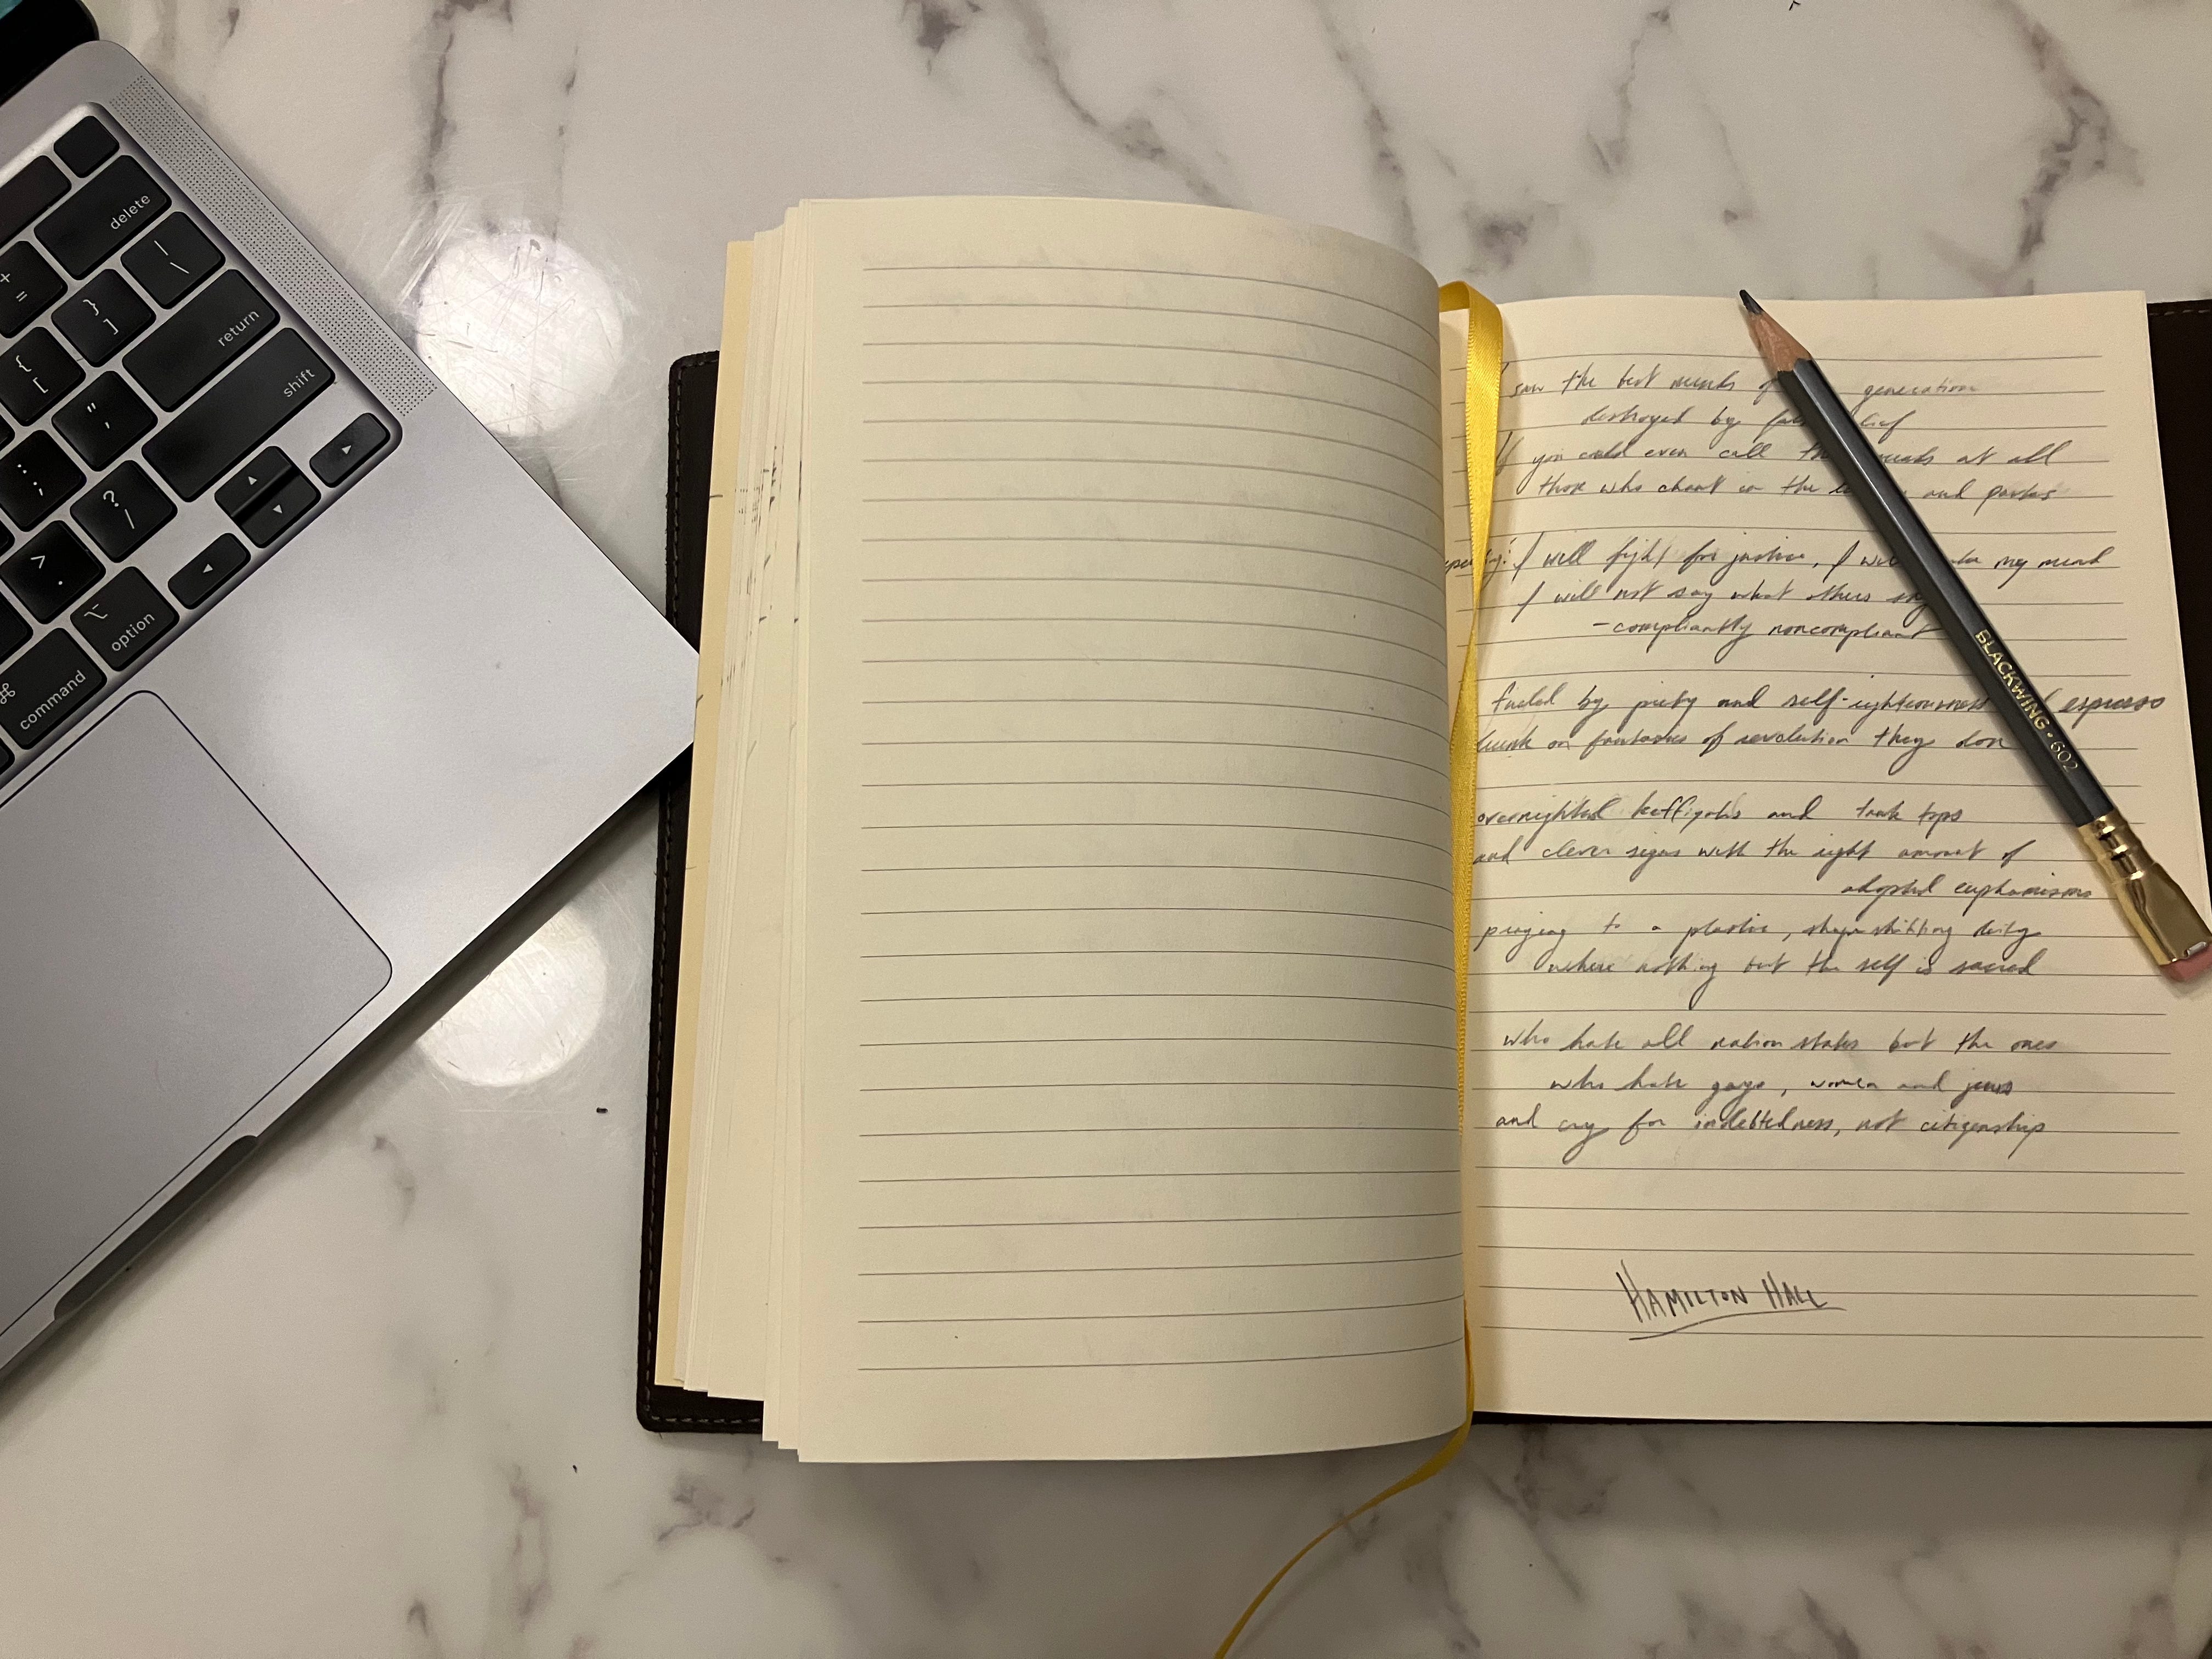 delete
+
=
}
]
|
\
{
[
return
"
'
shift
:
;
?
/
>
.
option
⌘
command
saw the best minds of generation
destroyed by
If you could even call at all
those who chant in the and parks
I will fight for justice, I my mind
I will not say what others say
- compliantly noncompliant
fueled by piety and self-righteousness espresso
drunk on fantasies of revolution they don
overnighted keffiyahs and tank tops
and clever signs with the right amount of
adopted euphamisms
praying to a plastic, shapeshifting deity
where nothing but the self is sacred
who hate all nation states but the ones
who hate gays, women and jews
and cry for indebtedness, not citizenship
HAMILTON HALL
BLACKWING • 602